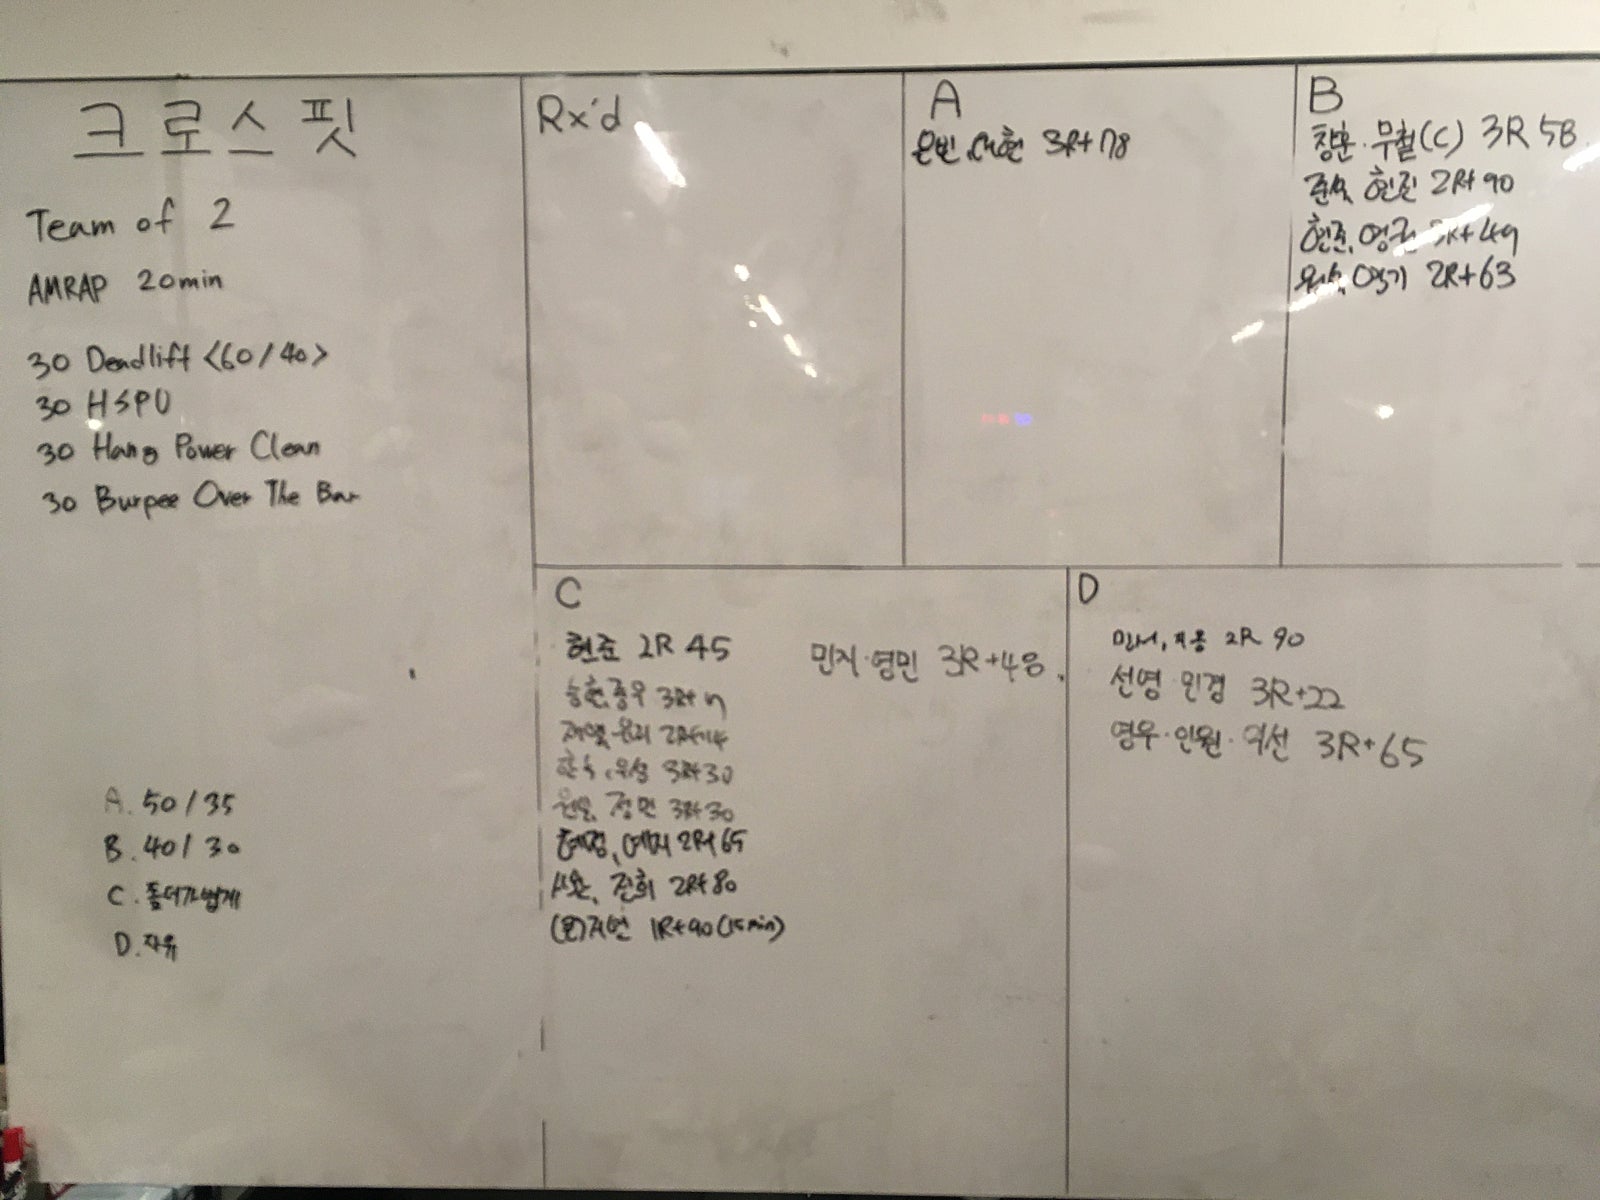 크로스핏
Team of 2
AMRAP 20min
30 Deadlift <60/40>
30 HSPU
30 Hang Power Clean
30 Burpee Over The Bar
A. 50/35
B. 40/30
C. 좀더가볍게
D. 자유
Rx'd
A
은빈, 대헌 3R+78
B
창훈·무철(C) 3R 58
현진 2R+90
현준, 영권 3R+49
2R+63
C
현준 2R 45
승헌, 종우
3R+30
정민 3R+30
혜정, 예지 2R+65
진희 2R+80
지연 1R+90 (15min)
민지·영민 3R+48
D
민서, 지용 2R 90
선영 민경 3R+22
영우·인원·덕선 3R+65